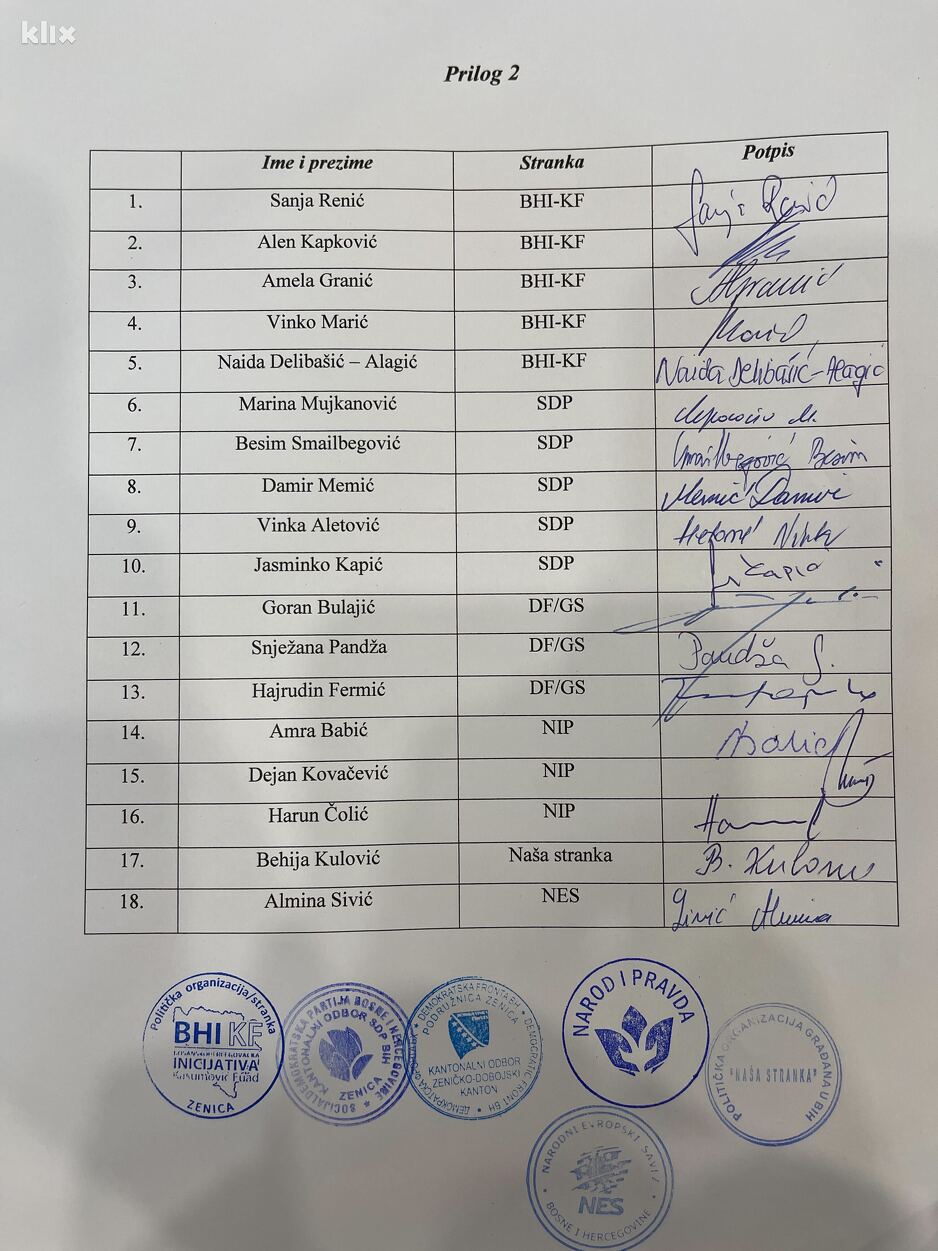 klix
Prilog 2
Ime i prezime Stranka Potpis
1. Sanja Renić BHI-KF Sanja Renić
2. Alen Kapković BHI-KF
3. Amela Granić BHI-KF AGranić
4. Vinko Marić BHI-KF Marić
5. Naida Delibašić – Alagić BHI-KF Naida Delibašić-Alagić
6. Marina Mujkanović SDP
7. Besim Smailbegović SDP Smailbegović Besim
8. Damir Memić SDP Memić Damir
9. Vinka Aletović SDP
10. Jasminko Kapić SDP
11. Goran Bulajić DF/GS
12. Snježana Pandža DF/GS Pandža S.
13. Hajrudin Fermić DF/GS
14. Amra Babić NIP
15. Dejan Kovačević NIP
16. Harun Čolić NIP
17. Behija Kulović Naša stranka B. Kulović
18. Almina Sivić NES Sivić Almina
Politička organizacija/stranka
BHI KF
BOSANSKOHERCEGOVAČKA
INICIJATIVA
Kasumović Fuad
ZENICA
SOCIJALDEMOKRATSKA PARTIJA BOSNE I HERCEGOVINE
KANTONALNI ODBOR SDP BIH
ZENICA
DEMOKRATSKA FRONTA BH • DEMOCRATIC FRONT BH •
PODRUŽNICA ZENICA
KANTONALNI ODBOR
ZENIČKO-DOBOJSKI
KANTON
NAROD I PRAVDA
POLITIČKA ORGANIZACIJA GRAĐANA U BIH
"NAŠA STRANKA"
NARODNI EVROPSKI SAVEZ
NES
BOSNE I HERCEGOVINE